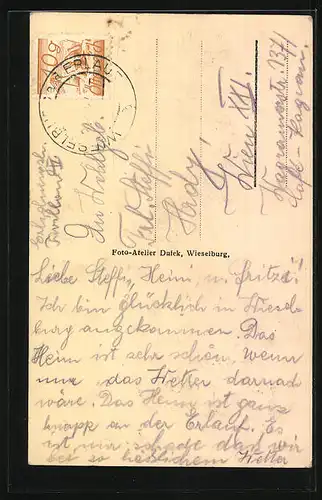 An Wohlgeb.
Frl. Steffi
Hedy
Wien XXI.
Wagramerstr. 137/
Café - Kagran.
Foto-Atelier Dulek, Wieselburg,
Liebe Steffi, Heini u. Fritzi!
Ich bin glücklich in Wiesel-
burg angekommen. Das
Heim ist sehr schön, wenn
nur das Wetter darnach
wäre. Das Heim ist ganz
knapp an der Erlauf. Es
ist nur schade daß wir
bei so häßlichem Wetter